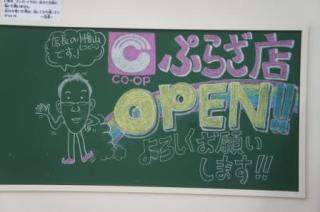 店長の小檜山
です!
CO-OP
ぷらざ店
OPEN!!
よろしくお願い
します!!